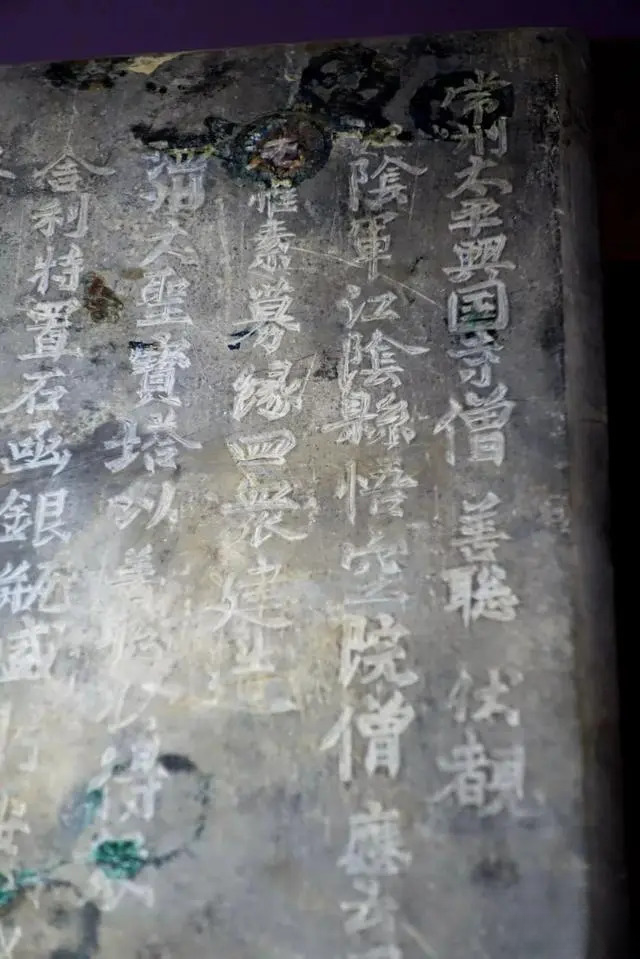 常州太平興国寺僧 善聡 伏覩
江陰軍江陰縣悟空院僧 應
惟素募緣四衆建
泗州大聖寶塔以善聡收得
舍利特置石函銀瓶盛